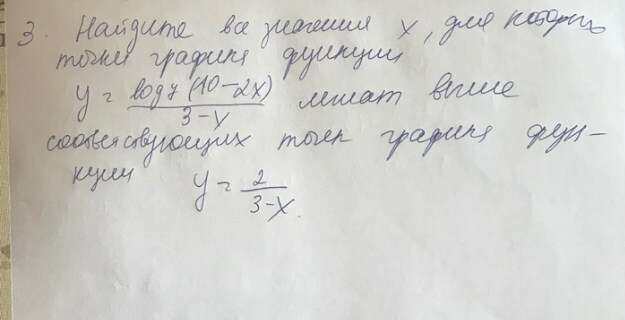 3. Найдите все значения x, для которых
точки графика функции
y = log₇(10-2x) / 3-x лежат выше
соответствующих точек графика фун-
кции y = 2 / 3-x.